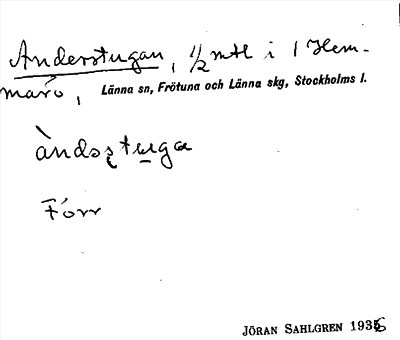 Anderstugan, 1/2 mtl i 1 Hem-
marö, Länna sn, Frötuna och Länna skg, Stockholms l.
àndoʂtuga
Förr
JÖRAN SAHLGREN 1936